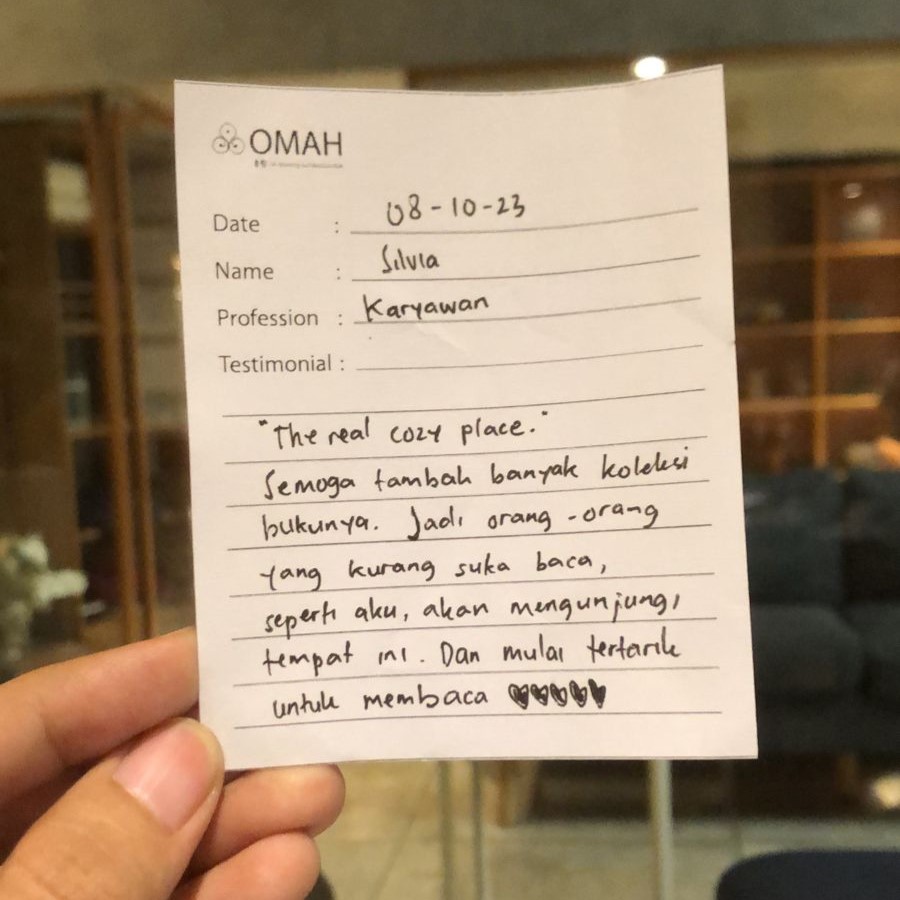 OMAH
Date : 08-10-23
Name : Silvia
Profession : Karyawan
Testimonial :
"The real cozy place."
Semoga tambah banyak koleksi
bukunya. Jadi orang-orang
yang kurang suka baca,
seperti aku, akan mengunjungi
tempat ini. Dan mulai tertarik
untuk membaca